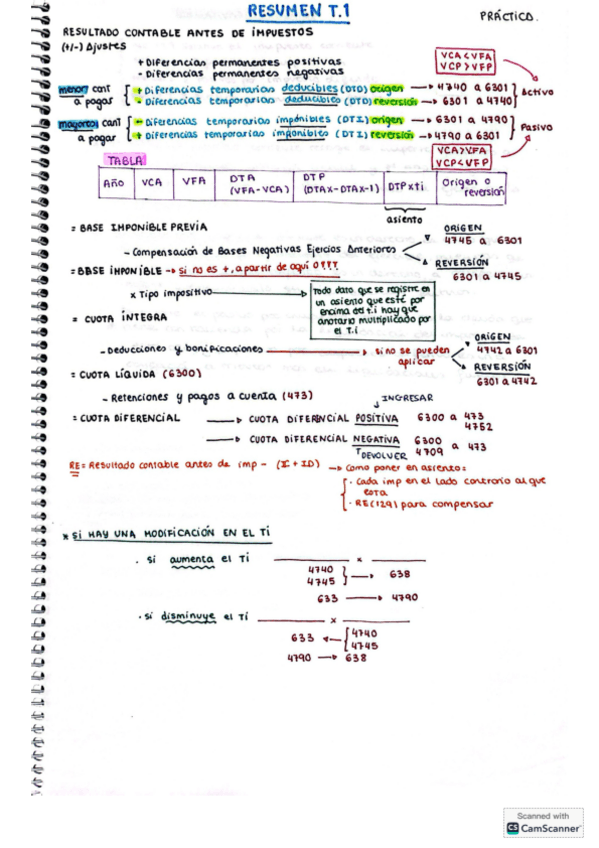 RESUMEN T.1
PRÁCTICO.
RESULTADO CONTABLE ANTES DE IMPUESTOS
(+/-) Ajustes
+ Diferencias permanentes positivas
- Diferencias permanentes negativas
VCA < VFA
VCP > VFP
menor cant a pagar
+ Diferencias temporarias deducibles (DTD) origen → 4740 a 6301
- Diferencias temporarias deducibles (DTD) reversión → 6301 a 4740
Activo
mayor cant a pagar
- Diferencias temporarias imponibles (DTI) origen → 6301 a 4790
+ Diferencias temporarias imponibles (DTI) reversión → 4790 a 6301
Pasivo
VCA > VFA
VCP < VFP
TABLA
Año | VCA | VFA | DTA (VFA-VCA) | DTP (DTAx-DTAx-1) | DTPxti | Origen o reversión
asiento
= BASE IMPONIBLE PREVIA
- Compensación de Bases Negativas Ejercicios Anteriores
ORIGEN
4745 a 6301
REVERSIÓN
6301 a 4745
= BASE IMPONIBLE → si no es +, a partir de aquí 0 !!!
x Tipo impositivo
Todo dato que se registre en
un asiento que esté por
encima del t.i hay que
anotarlo multiplicado por
el T.i
= CUOTA ÍNTEGRA
- Deducciones y bonificaciones → si no se pueden aplicar
ORIGEN
4742 a 6301
REVERSIÓN
6301 a 4742
= CUOTA LÍQUIDA (6300)
- Retenciones y pagos a cuenta (473)
INGRESAR
= CUOTA DIFERENCIAL → CUOTA DIFERENCIAL POSITIVA 6300 a 473
4752
→ CUOTA DIFERENCIAL NEGATIVA 6300
4709 a 473
DEVOLVER
RE = Resultado contable antes de imp - (IC + ID) → Como poner en asiento:
· Cada imp en el lado contrario al que
esta
· RE (129) para compensar
* SI HAY UNA MODIFICACIÓN EN EL TI
· Si aumenta el TI
x
4740
4745
→ 638
633 → 4790
· Si disminuye el TI
x
633 ← 4740
4745
4790 → 638
Scanned with
CS CamScanner